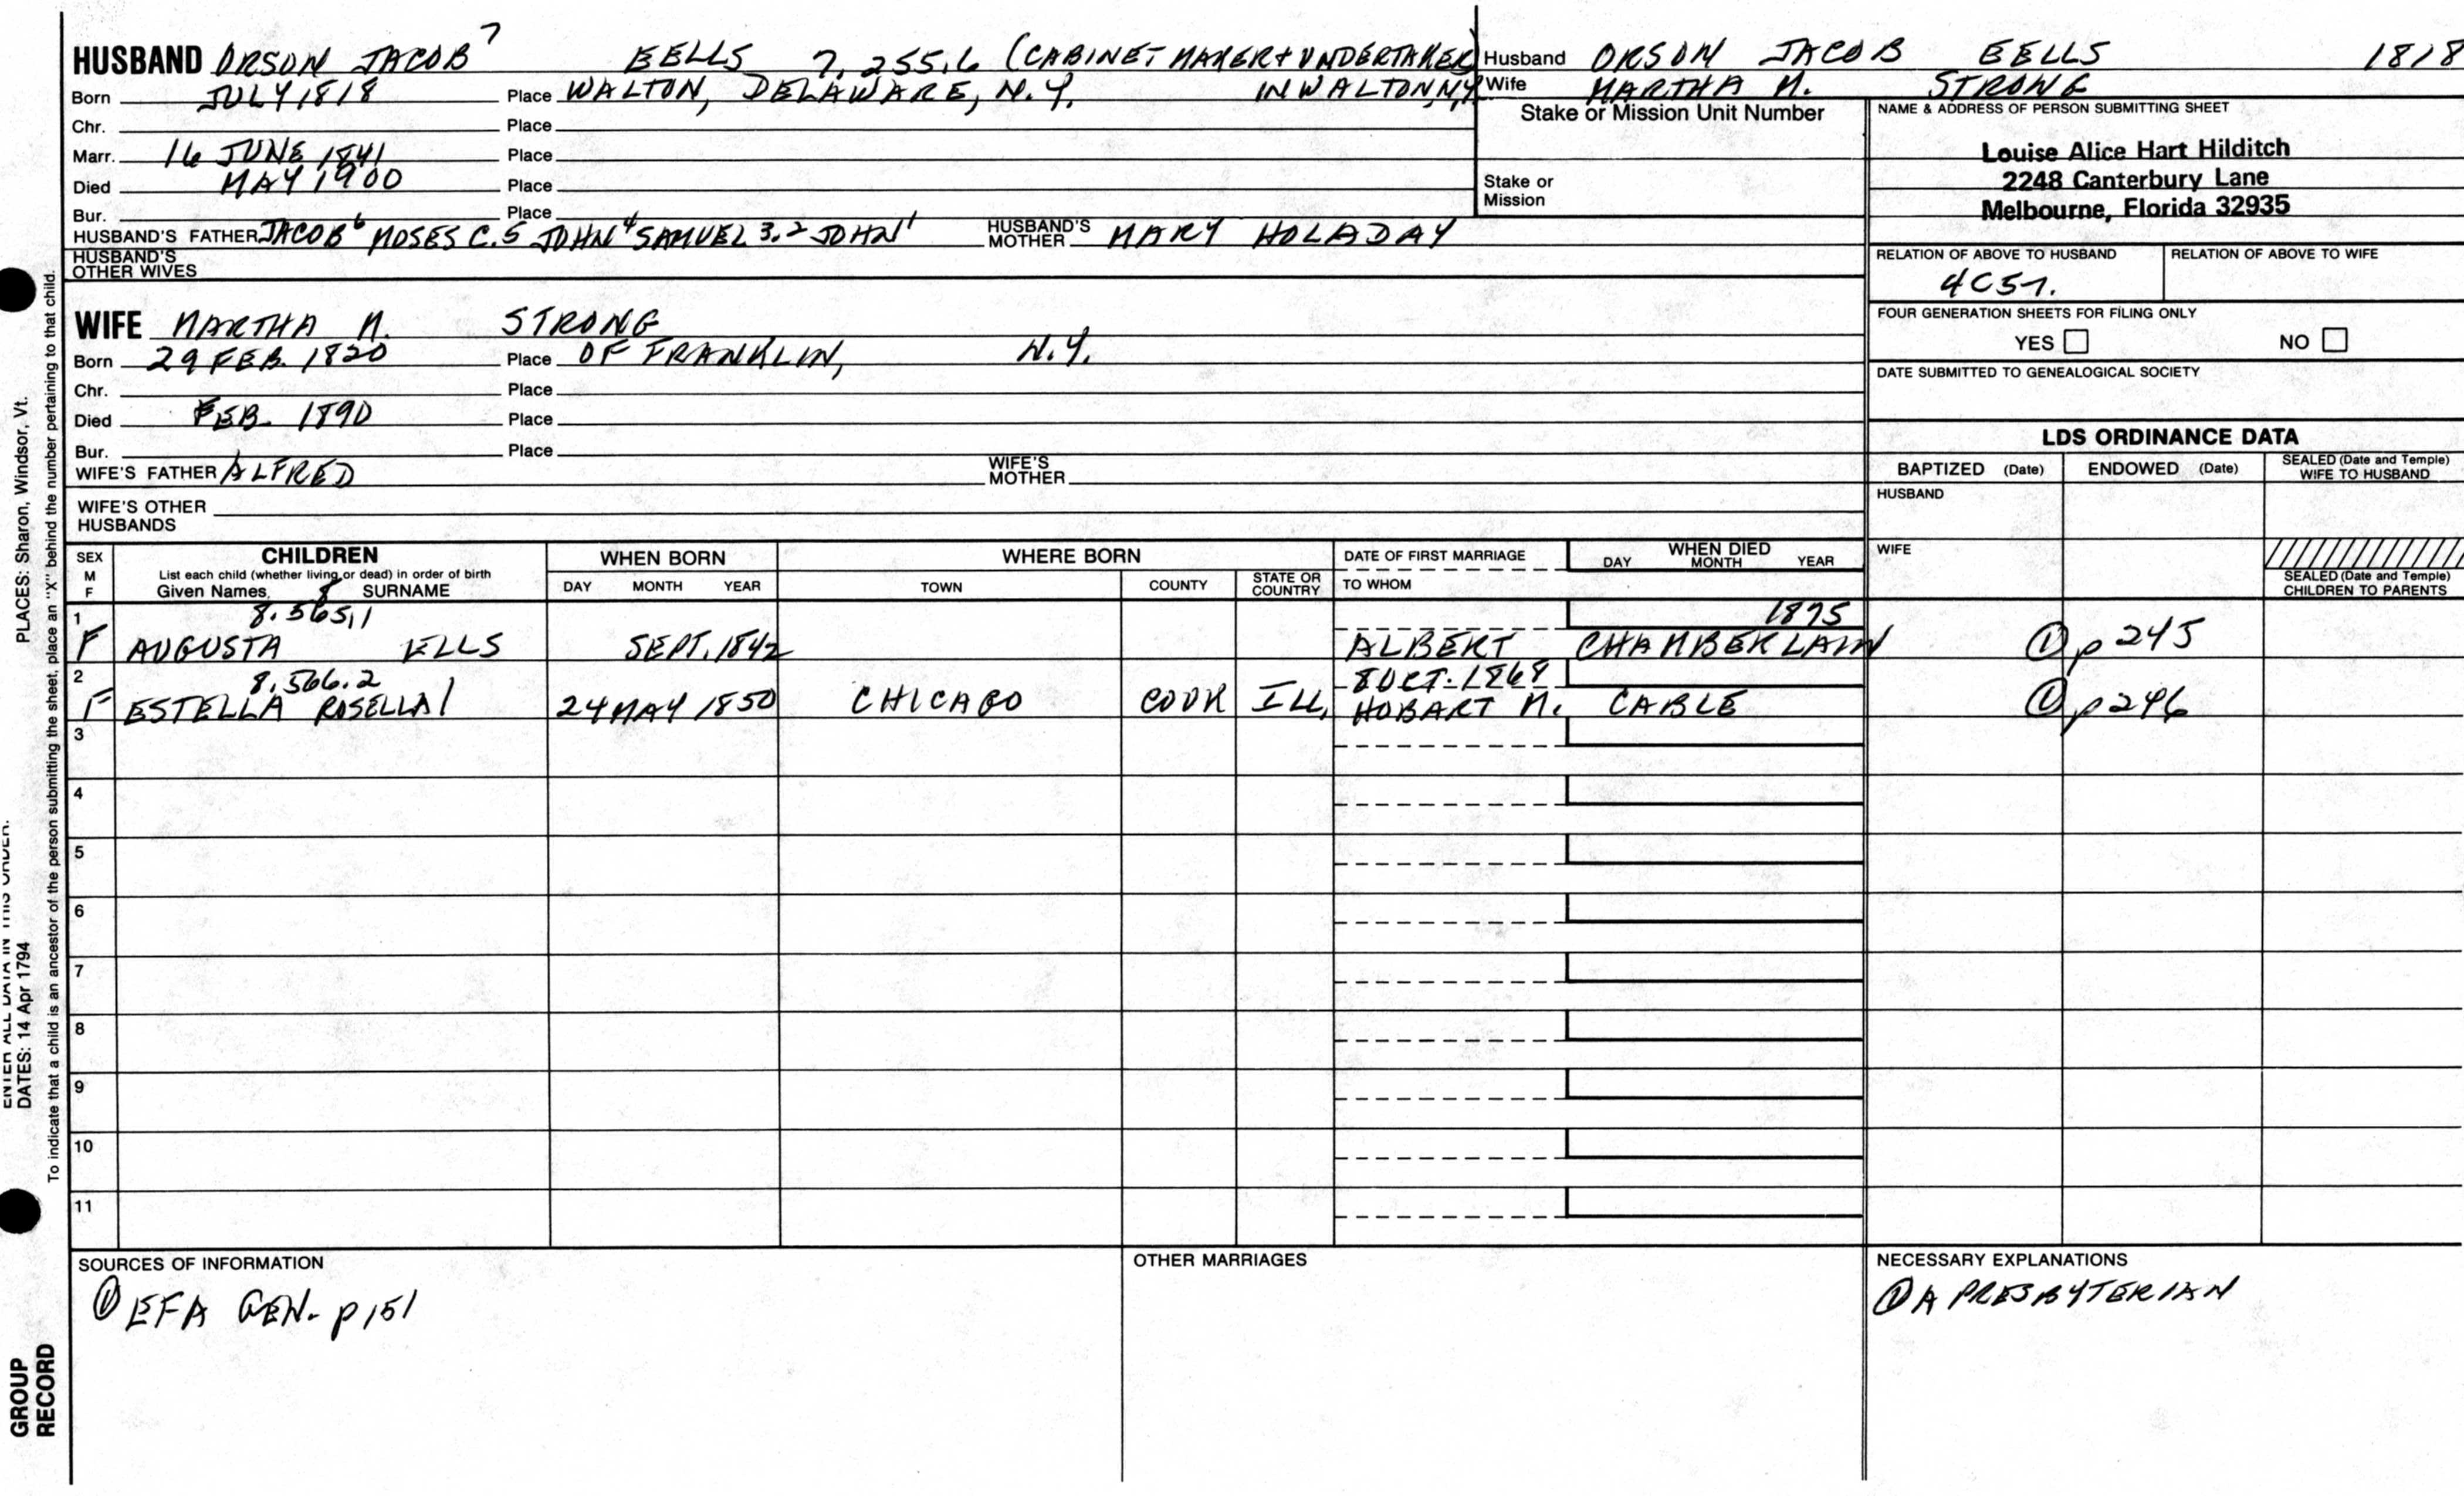 HUSBAND ORSON JACOB 7 EELLS 7,255.6 (CABINET MAKER + UNDERTAKER
Born JULY 1818 Place WALTON, DELAWARE, N.Y. IN WALTON NY
Chr. Place
Marr. 16 JUNE 1841 Place
Died MAY 1900 Place
Bur. Place
HUSBAND'S FATHER JACOB 6 MOSES C. 5 JOHN 4 SAMUEL 3,2 JOHN 1 HUSBAND'S MOTHER MARY HOLADAY
HUSBAND'S OTHER WIVES
WIFE MARTHA M. STRONG
Born 29 FEB. 1820 Place OF FRANKLIN, N.Y.
Chr. Place
Died FEB. 1890 Place
Bur. Place
WIFE'S FATHER ALFRED WIFE'S MOTHER
WIFE'S OTHER HUSBANDS
Husband ORSON JACOB EELLS 1818
Wife MARTHA M. STRONG
Stake or Mission Unit Number
Stake or Mission
NAME & ADDRESS OF PERSON SUBMITTING SHEET
Louise Alice Hart Hilditch
2248 Canterbury Lane
Melbourne, Florida 32935
RELATION OF ABOVE TO HUSBAND RELATION OF ABOVE TO WIFE
FOUR GENERATION SHEETS FOR FILING ONLY
YES NO
DATE SUBMITTED TO GENEALOGICAL SOCIETY
LDS ORDINANCE DATA
BAPTIZED (Date) ENDOWED (Date) SEALED (Date and Temple) WIFE TO HUSBAND
HUSBAND
WIFE
SEALED (Date and Temple) CHILDREN TO PARENTS
SEX M F CHILDREN WHEN BORN WHERE BORN DATE OF FIRST MARRIAGE WHEN DIED
List each child (whether living or dead) in order of birth
Given Names 8 SURNAME DAY MONTH YEAR TOWN COUNTY STATE OR COUNTRY TO WHOM DAY MONTH YEAR
1 8.565,1 1895
F AUGUSTA EELLS SEPT. 1842 ALBERT CHAMBERLAIN ① p 245
2 8.566.2 8 OCT. 1868
F ESTELLA ROSELLA 24 MAY 1850 CHICAGO COOK ILL, HOBART M. CABLE ① p 246
3
4
5
6
7
8
9
10
11
SOURCES OF INFORMATION
① EFA GEN. p 151
OTHER MARRIAGES
NECESSARY EXPLANATIONS
① A PRESBYTERIAN
PLACES: Sharon, Windsor, Vt.
ENTER ALL DATA IN THIS ORDER:
DATES: 14 Apr 1794
To indicate that a child is an ancestor of the person submitting the sheet, place an "X" behind the number pertaining to that child.
GROUP
RECORD